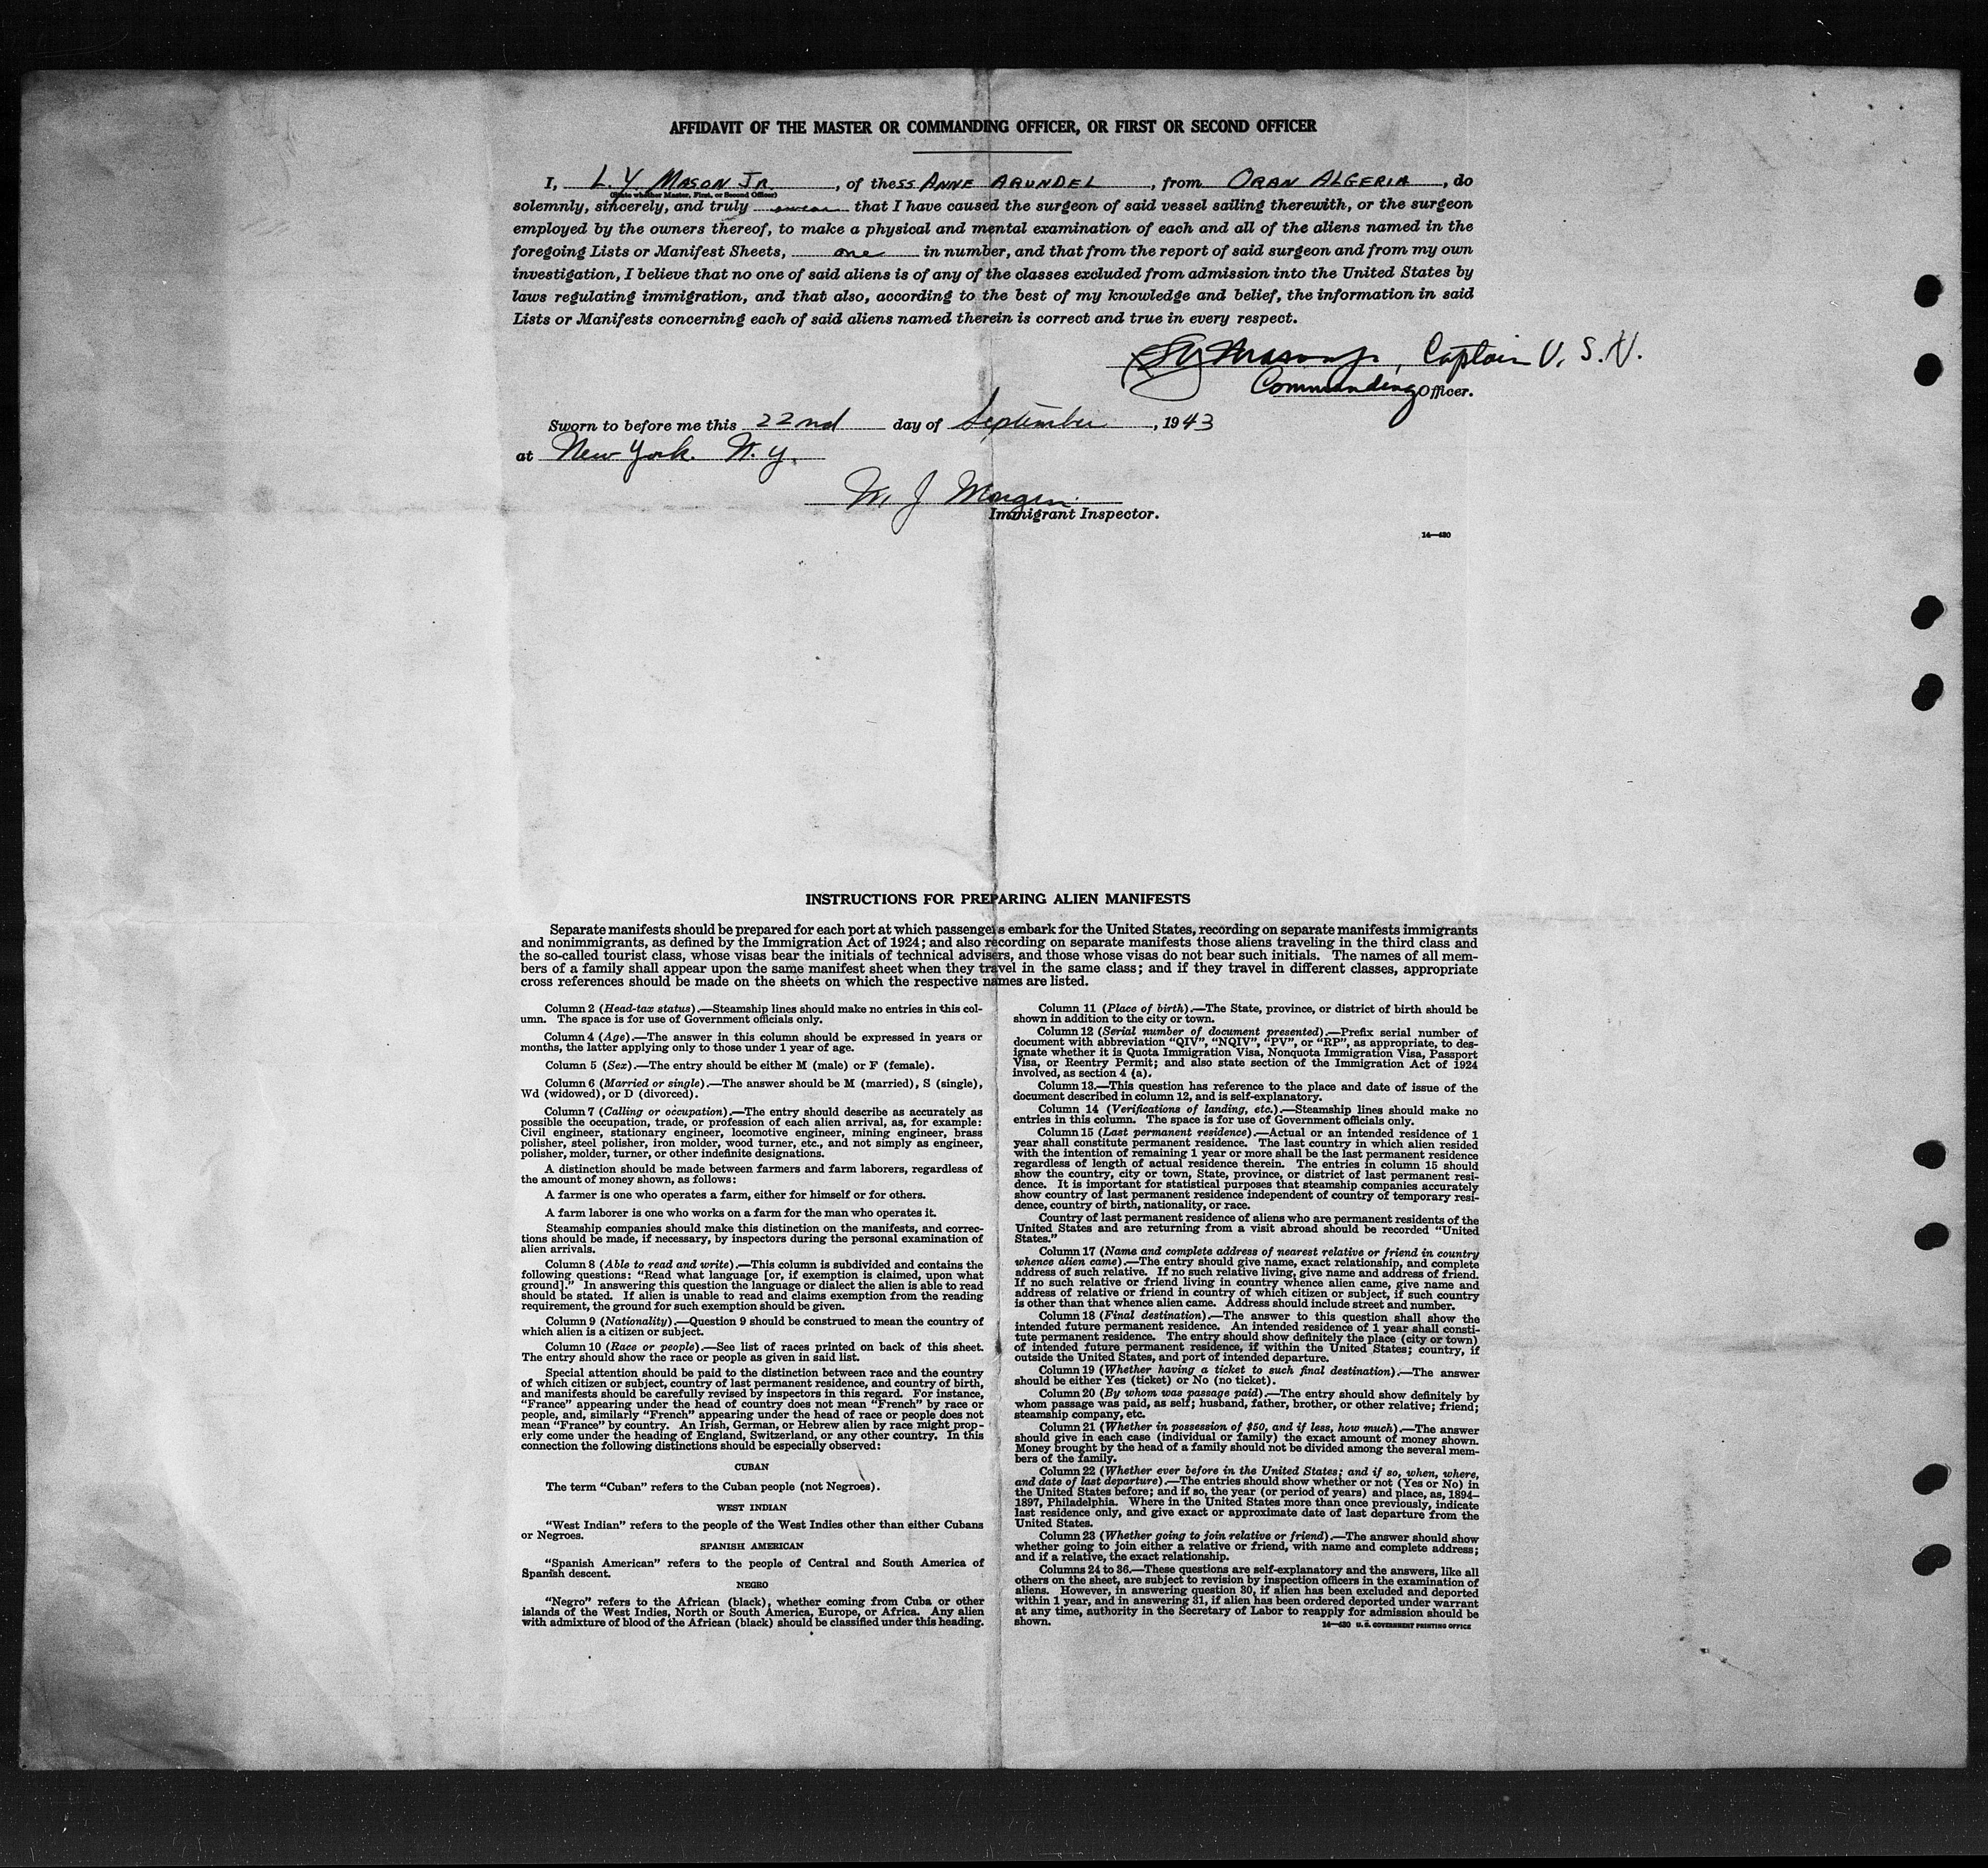 AFFIDAVIT OF THE MASTER OR COMMANDING OFFICER, OR FIRST OR SECOND OFFICER
I, L. Y. MASON JR. , of the SS ANNE ARUNDEL , from ORAN ALGERIA , do
(State whether Master, First, or Second Officer)
solemnly, sincerely, and truly swear that I have caused the surgeon of said vessel sailing therewith, or the surgeon
employed by the owners thereof, to make a physical and mental examination of each and all of the aliens named in the
foregoing Lists or Manifest Sheets, one in number, and that from the report of said surgeon and from my own
investigation, I believe that no one of said aliens is of any of the classes excluded from admission into the United States by
laws regulating immigration, and that also, according to the best of my knowledge and belief, the information in said
Lists or Manifests concerning each of said aliens named therein is correct and true in every respect.
L Y Mason Jr., Captain U. S. N.
Commanding Officer.
Sworn to before me this 22nd day of September , 1943
at New York. N. Y.
J
Immigrant Inspector.
14—430
INSTRUCTIONS FOR PREPARING ALIEN MANIFESTS
Separate manifests should be prepared for each port at which passengers embark for the United States, recording on separate manifests immigrants
and nonimmigrants, as defined by the Immigration Act of 1924; and also recording on separate manifests those aliens traveling in the third class and
the so-called tourist class, whose visas bear the initials of technical advisers, and those whose visas do not bear such initials. The names of all mem-
bers of a family shall appear upon the same manifest sheet when they travel in the same class; and if they travel in different classes, appropriate
cross references should be made on the sheets on which the respective names are listed.
Column 2 (Head-tax status).—Steamship lines should make no entries in this col-
umn. The space is for use of Government officials only.
Column 4 (Age).—The answer in this column should be expressed in years or
months, the latter applying only to those under 1 year of age.
Column 5 (Sex).—The entry should be either M (male) or F (female).
Column 6 (Married or single).—The answer should be M (married), S (single),
Wd (widowed), or D (divorced).
Column 7 (Calling or occupation).—The entry should describe as accurately as
possible the occupation, trade, or profession of each alien arrival, as, for example:
Civil engineer, stationary engineer, locomotive engineer, mining engineer, brass
polisher, steel polisher, iron molder, wood turner, etc., and not simply as engineer,
polisher, molder, turner, or other indefinite designations.
A distinction should be made between farmers and farm laborers, regardless of
the amount of money shown, as follows:
A farmer is one who operates a farm, either for himself or for others.
A farm laborer is one who works on a farm for the man who operates it.
Steamship companies should make this distinction on the manifests, and correc-
tions should be made, if necessary, by inspectors during the personal examination of
alien arrivals.
Column 8 (Able to read and write).—This column is subdivided and contains the
following questions: “Read what language [or, if exemption is claimed, upon what
ground].” In answering this question the language or dialect the alien is able to read
should be stated. If alien is unable to read and claims exemption from the reading
requirement, the ground for such exemption should be given.
Column 9 (Nationality).—Question 9 should be construed to mean the country of
which alien is a citizen or subject.
Column 10 (Race or people).—See list of races printed on back of this sheet.
The entry should show the race or people as given in said list.
Special attention should be paid to the distinction between race and the country
of which citizen or subject, country of last permanent residence, and country of birth,
and manifests should be carefully revised by inspectors in this regard. For instance,
“France” appearing under the head of country does not mean “French” by race or
people, and, similarly “French” appearing under the head of race or people does not
mean “France” by country. An Irish, German, or Hebrew alien by race might prop-
erly come under the heading of England, Switzerland, or any other country. In this
connection the following distinctions should be especially observed:
CUBAN
The term “Cuban” refers to the Cuban people (not Negroes).
WEST INDIAN
“West Indian” refers to the people of the West Indies other than either Cubans
or Negroes.
SPANISH AMERICAN
“Spanish American” refers to the people of Central and South America of
Spanish descent.
NEGRO
“Negro” refers to the African (black), whether coming from Cuba or other
islands of the West Indies, North or South America, Europe, or Africa. Any alien
with admixture of blood of the African (black) should be classified under this heading.
Column 11 (Place of birth).—The State, province, or district of birth should be
shown in addition to the city or town.
Column 12 (Serial number of document presented).—Prefix serial number of
document with abbreviation “QIV”, “NQIV”, “PV”, or “RP”, as appropriate, to des-
ignate whether it is Quota Immigration Visa, Nonquota Immigration Visa, Passport
Visa, or Reentry Permit; and also state section of the Immigration Act of 1924
involved, as section 4 (a).
Column 13.—This question has reference to the place and date of issue of the
document described in column 12, and is self-explanatory.
Column 14 (Verifications of landing, etc.).—Steamship lines should make no
entries in this column. The space is for use of Government officials only.
Column 15 (Last permanent residence).—Actual or an intended residence of 1
year shall constitute permanent residence. The last country in which alien resided
with the intention of remaining 1 year or more shall be the last permanent residence
regardless of length of actual residence therein. The entries in column 15 should
show the country, city or town, State, province, or district of last permanent resi-
dence. It is important for statistical purposes that steamship companies accurately
show country of last permanent residence independent of country of temporary resi-
dence, country of birth, nationality, or race.
Country of last permanent residence of aliens who are permanent residents of the
United States and are returning from a visit abroad should be recorded “United
States.”
Column 17 (Name and complete address of nearest relative or friend in country
whence alien came).—The entry should give name, exact relationship, and complete
address of such relative. If no such relative living, give name and address of friend.
If no such relative or friend living in country whence alien came, give name and
address of relative or friend in country of which citizen or subject, if such country
is other than that whence alien came. Address should include street and number.
Column 18 (Final destination).—The answer to this question shall show the
intended future permanent residence. An intended residence of 1 year shall consti-
tute permanent residence. The entry should show definitely the place (city or town)
of intended future permanent residence, if within the United States; country, if
outside the United States, and port of intended departure.
Column 19 (Whether having a ticket to such final destination).—The answer
should be either Yes (ticket) or No (no ticket).
Column 20 (By whom was passage paid).—The entry should show definitely by
whom passage was paid, as self; husband, father, brother, or other relative; friend;
steamship company, etc.
Column 21 (Whether in possession of $50, and if less, how much).—The answer
should give in each case (individual or family) the exact amount of money shown.
Money brought by the head of a family should not be divided among the several mem-
bers of the family.
Column 22 (Whether ever before in the United States; and if so, when, where,
and date of last departure).—The entries should show whether or not (Yes or No) in
the United States before; and if so, the year (or period of years) and place, as, 1894–
1897, Philadelphia. Where in the United States more than once previously, indicate
last residence only, and give exact or approximate date of last departure from the
United States.
Column 23 (Whether going to join relative or friend).—The answer should show
whether going to join either a relative or friend, with name and complete address;
and if a relative, the exact relationship.
Columns 24 to 36.—These questions are self-explanatory and the answers, like all
others on the sheet, are subject to revision by inspection officers in the examination of
aliens. However, in answering question 30, if alien has been excluded and deported
within 1 year, and in answering 31, if alien has been ordered deported under warrant
at any time, authority in the Secretary of Labor to reapply for admission should be
shown.
14—430 U. S. GOVERNMENT PRINTING OFFICE